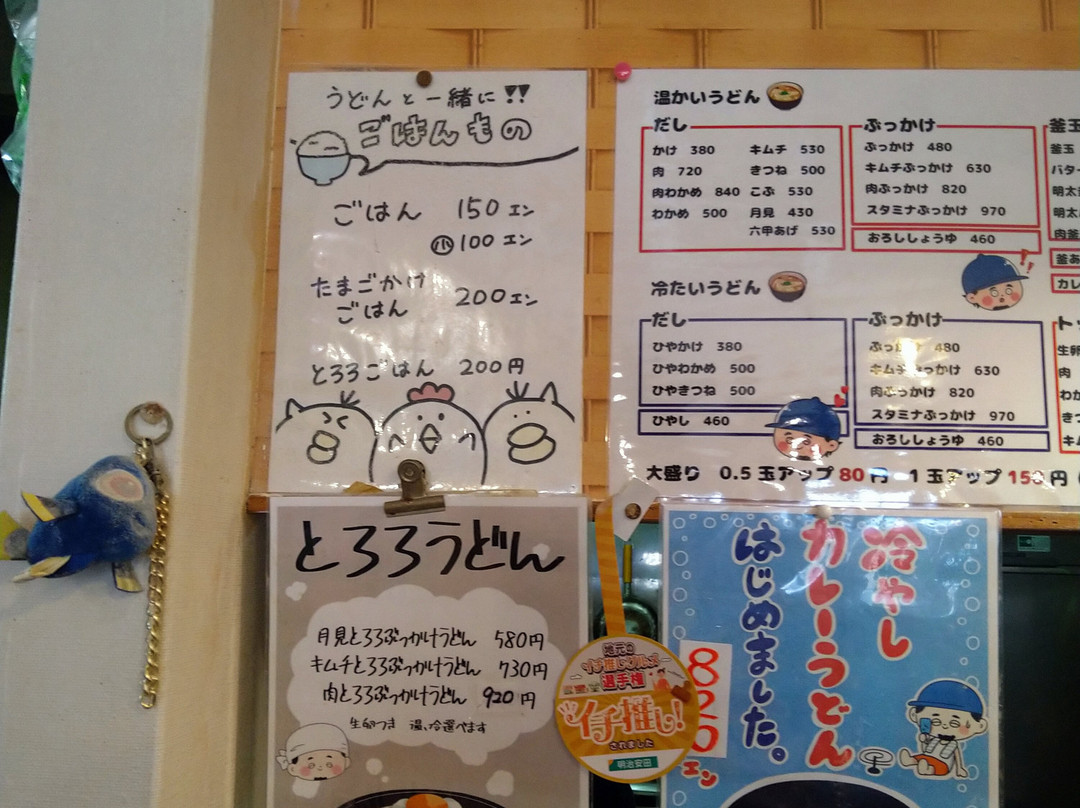 うどんと一緒に!!
ごはんもの
ごはん 150エン
小 100エン
たまごかけ
ごはん 200エン
とろろごはん 200円
温かいうどん
だし
かけ 380 キムチ 530
肉 720 きつね 500
肉わかめ 840 こぶ 530
わかめ 500 月見 430
六甲あげ 530
ぶっかけ
ぶっかけ 480
キムチぶっかけ 630
肉ぶっかけ 820
スタミナぶっかけ 970
おろししょうゆ 460
釜玉
釜玉
バター
明太
明太
肉釜
釜あ
カレ
冷たいうどん
だし
ひやかけ 380
ひやわかめ 500
ひやきつね 500
ひやし 460
ぶっかけ
ぶっかけ 480
キムチぶっかけ 630
肉ぶっかけ 820
スタミナぶっかけ 970
おろししょうゆ 460
ト
生卵
肉
わか
きつ
キム
大盛り 0.5玉アップ 80円 1玉アップ 150円
とろろうどん
月見とろろぶっかけうどん 580円
キムチとろろぶっかけうどん 730円
肉とろろぶっかけうどん 920円
生卵つき 温、冷選べます
地元の
イチ推しグルメ
選手権
イチ推し!
されました
明治安田
冷やし
カレーうどん
はじめました。
820エン